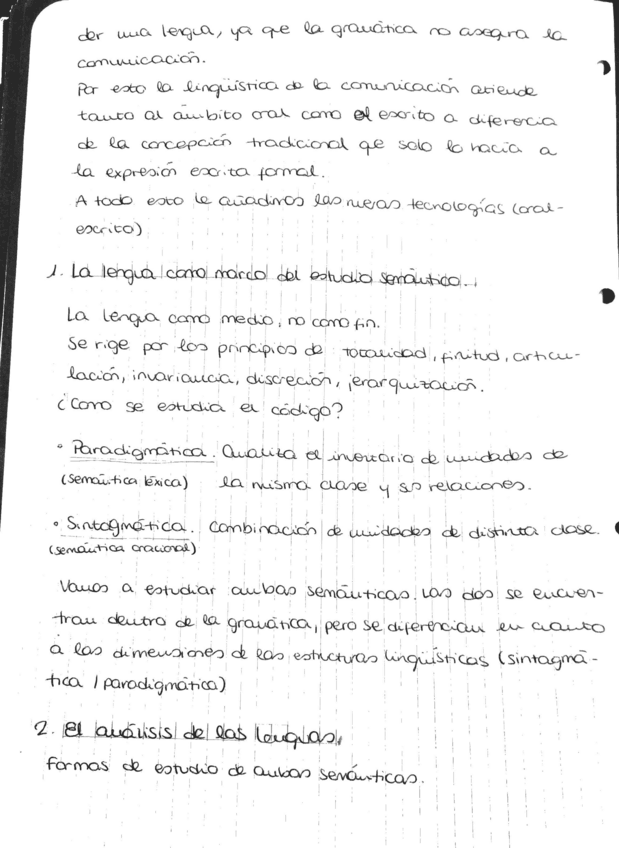 der una lengua, ya que la gramática no asegura la
comunicación.
Por esto la lingüística de la comunicación atiende
tanto al ámbito oral como el escrito a diferencia
de la concepción tradicional qe solo lo hacía a
la expresión escrita formal.
A todo esto le añadimos las nuevas tecnologías (oral-
escrito)
1. La lengua como marco del estudio semántico.
La lengua como medio, no como fin.
Se rige por los principios de totalidad, finitud, articu-
lación, invariancia, discreción, jerarquización.
¿Cómo se estudia el código?
• Paradigmática. Analiza el inventario de unidades de
(semántica léxica) la misma clase y sus relaciones.
• Sintagmática. Combinación de unidades de distinta clase.
(semántica oracional)
Vamos a estudiar ambas semánticas. Las dos se encuen-
tran dentro de la gramática, pero se diferencian en cuanto
a las dimensiones de las estructuras lingüísticas (sintagmá-
tica / paradigmática)
2. El análisis de las lenguas.
Formas de estudio de ambas semánticas.